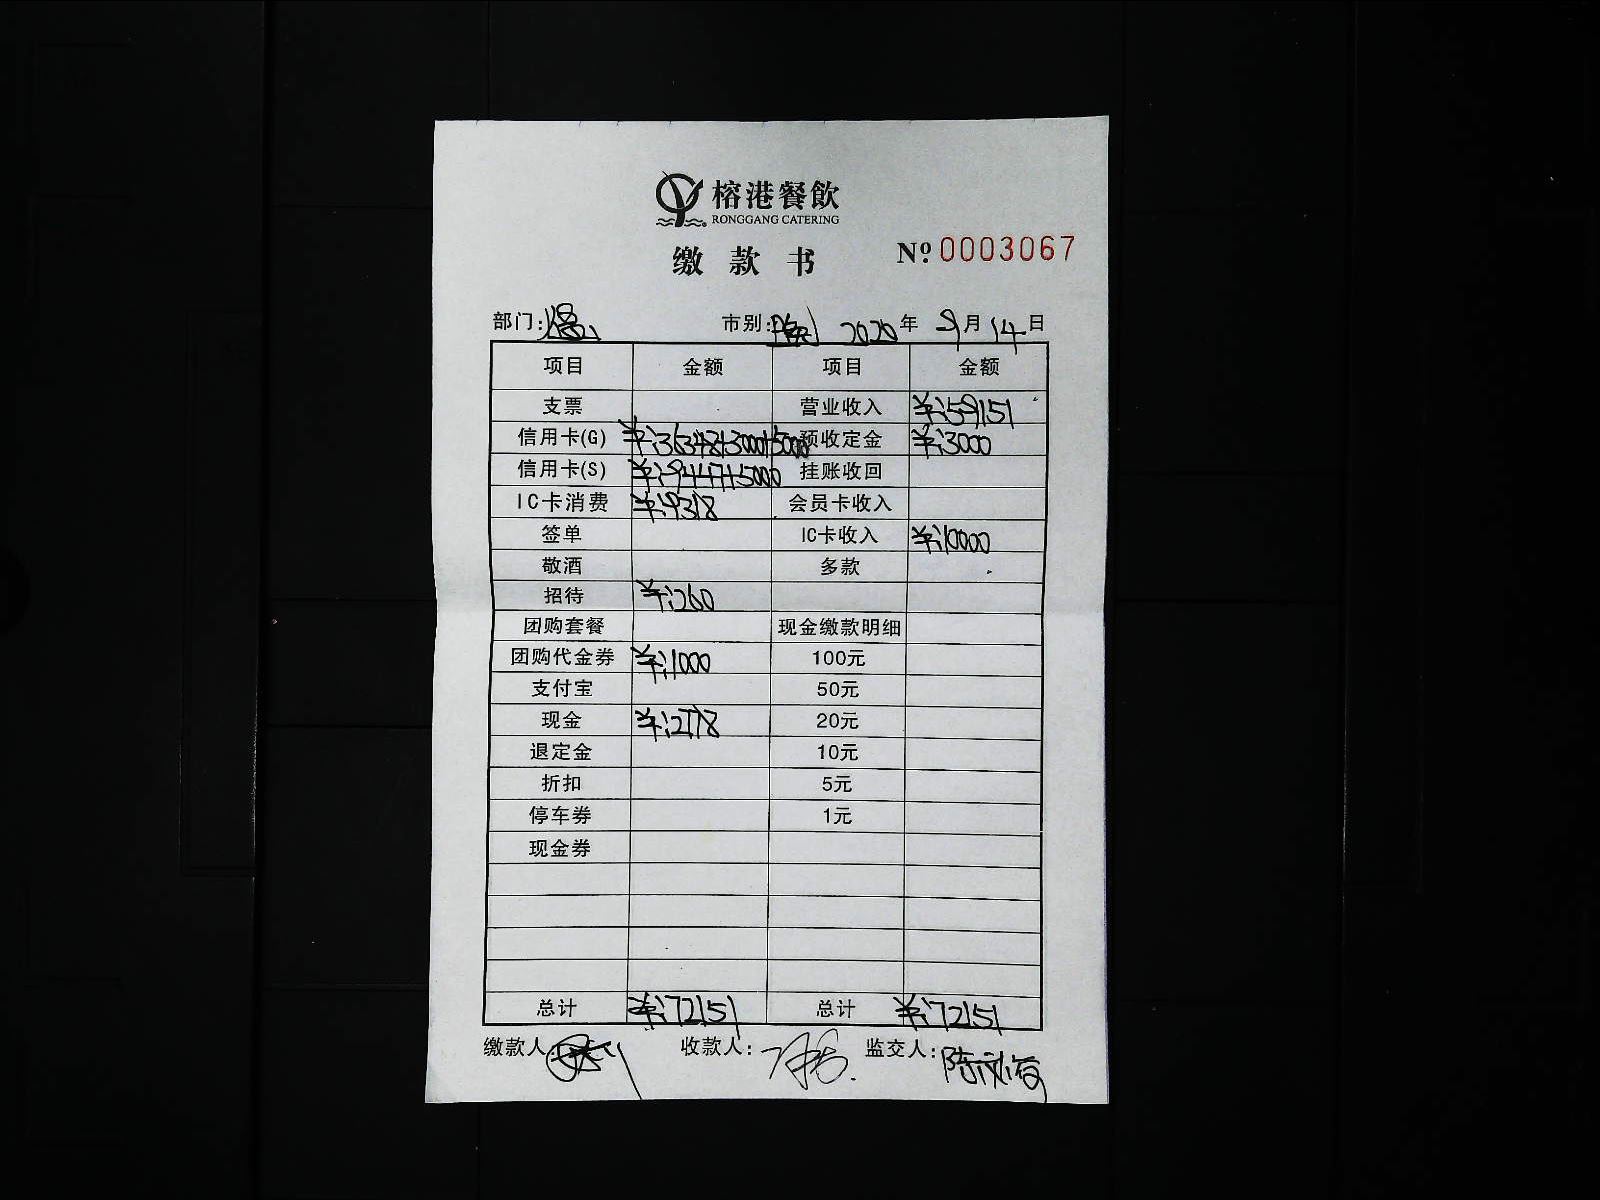 榕港餐飲
RONGGANG CATERING
缴款书 Nº 0003067
部门: 市别: 晚 2020年 9月14日
项目 金额 项目 金额
支票 营业收入 ¥:59151
信用卡(G) ¥:36348+3000+5000 预收定金 ¥:3000
信用卡(S) ¥:9447+5000 挂账收回
IC卡消费 ¥:9318 会员卡收入
签单 IC卡收入 ¥:10000
敬酒 多款
招待 ¥:260
团购套餐 现金缴款明细
团购代金券 ¥:1000 100元
支付宝 50元
现金 ¥:2778 20元
退定金 10元
折扣 5元
停车券 1元
现金券
总计 ¥:72151 总计 ¥:72151
缴款人: 收款人: 监交人: 陈